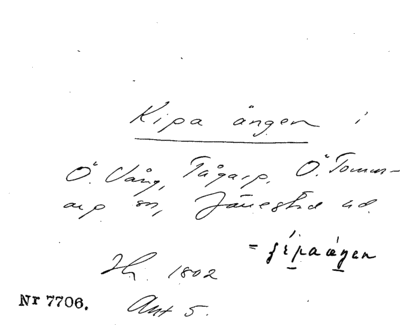 Kipa ängen i
Ö. Vång, Tågarp, Ö. Tomm-
arp sn, Järrestad hd.
= jépaäŋen
Hr. 1802
Nr 7706. Akt 5.